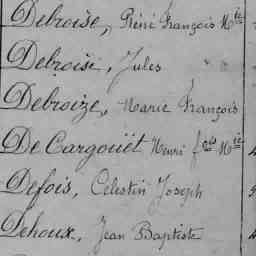 Debroise, Réné François M.ie
Debroise, Jules " "
Debroize, Marie François
De Cargouët Henri f.ois M.ie 4
Defois, Célestin Joseph
Dehoux, Jean Baptiste 4